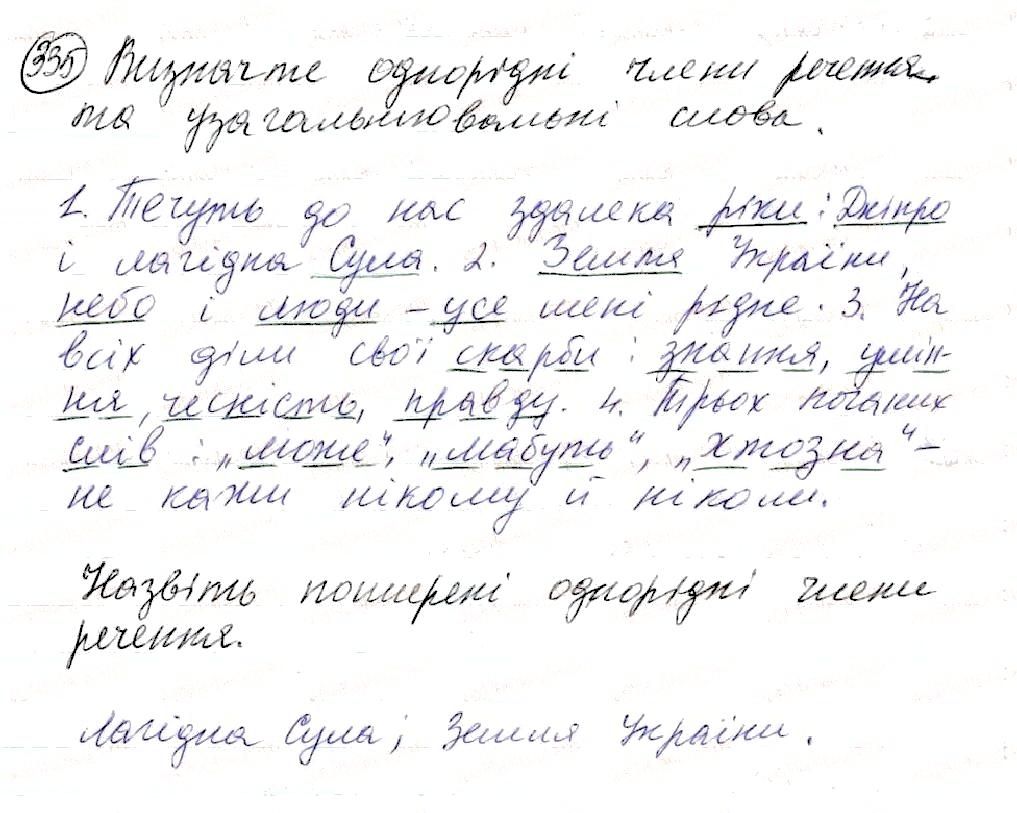 335 Визначте однорідні члени речення
та узагальнювальні слова.
1. Течуть до нас здалека ріки: Дніпро
і лагідна Сула. 2. Земля України,
небо і люди – усе мені рідне. 3. На
всіх діли свої скарби: знання, умін-
ня, чесність, правду. 4. Трьох поганих
слів: „може“, „мабуть“, „хтозна“ –
не кажи нікому й ніколи.
Назвіть поширені однорідні члени
речення.
Лагідна Сула; Земля України.